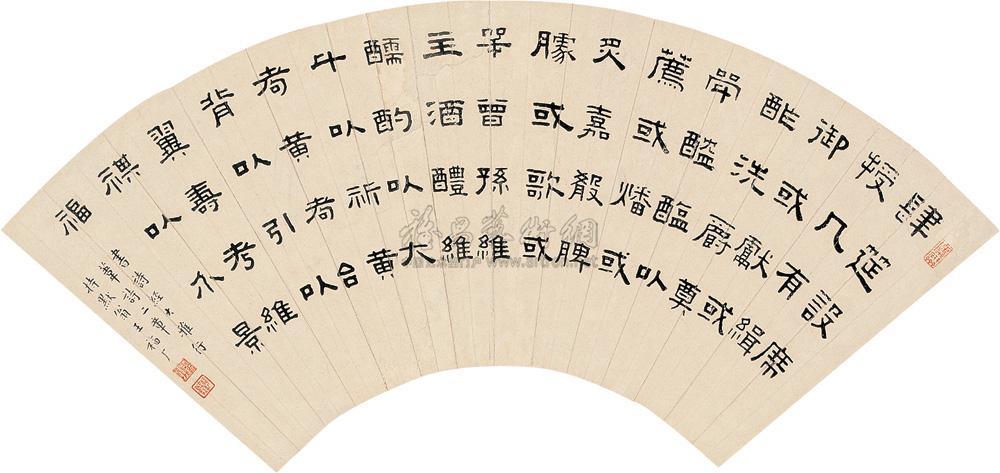 肆筵設席
授几有緝
御或獻或
酢洗爵奠
斝醓醢以
薦或燔或
炙嘉殽脾
臄或歌或
咢曾孫維
主酒醴維
醹酌以大
斗以祈黃
耇黃耇台
背以引以
翼壽考維
祺以介景
福
書詩經大雅行
葦詩二章
持默翁王福厂